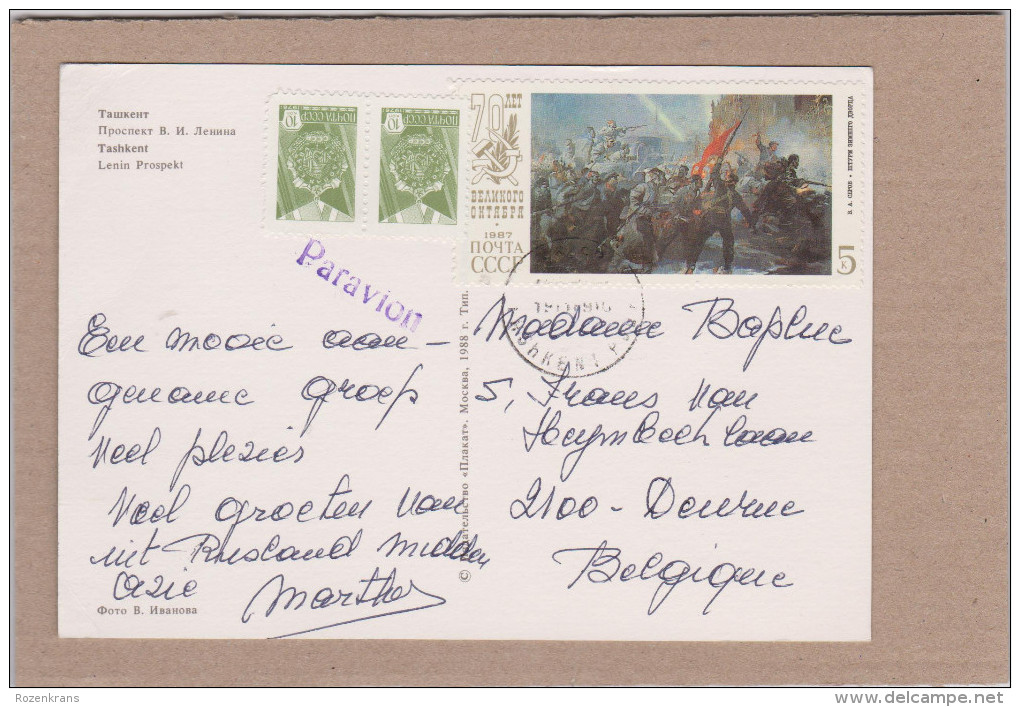 Ташкент
Проспект В. И. Ленина
Tashkent
Lenin Prospekt
10 ПОЧТА СССР
10 ПОЧТА СССР
70 ЛЕТ
ВЕЛИКОГО
ОКТЯБРЯ
1987
ПОЧТА
СССР
В. А. СЕРОВ • ШТУРМ ЗИМНЕГО ДВОРЦА
5 к
Paravion
TASHKENT P
Een mooie aan-
gename groep
Veel plezier
Veel groeten van
uit Rusland midden
Azie
Marthe
Фото В. Иванова
© Издательство «Плакат». Москва, 1988 г. Тип.
Madame
5, Frans Van
laan
2100 - Deurne
Belgique
Rozenkrans
www.delcampe.net